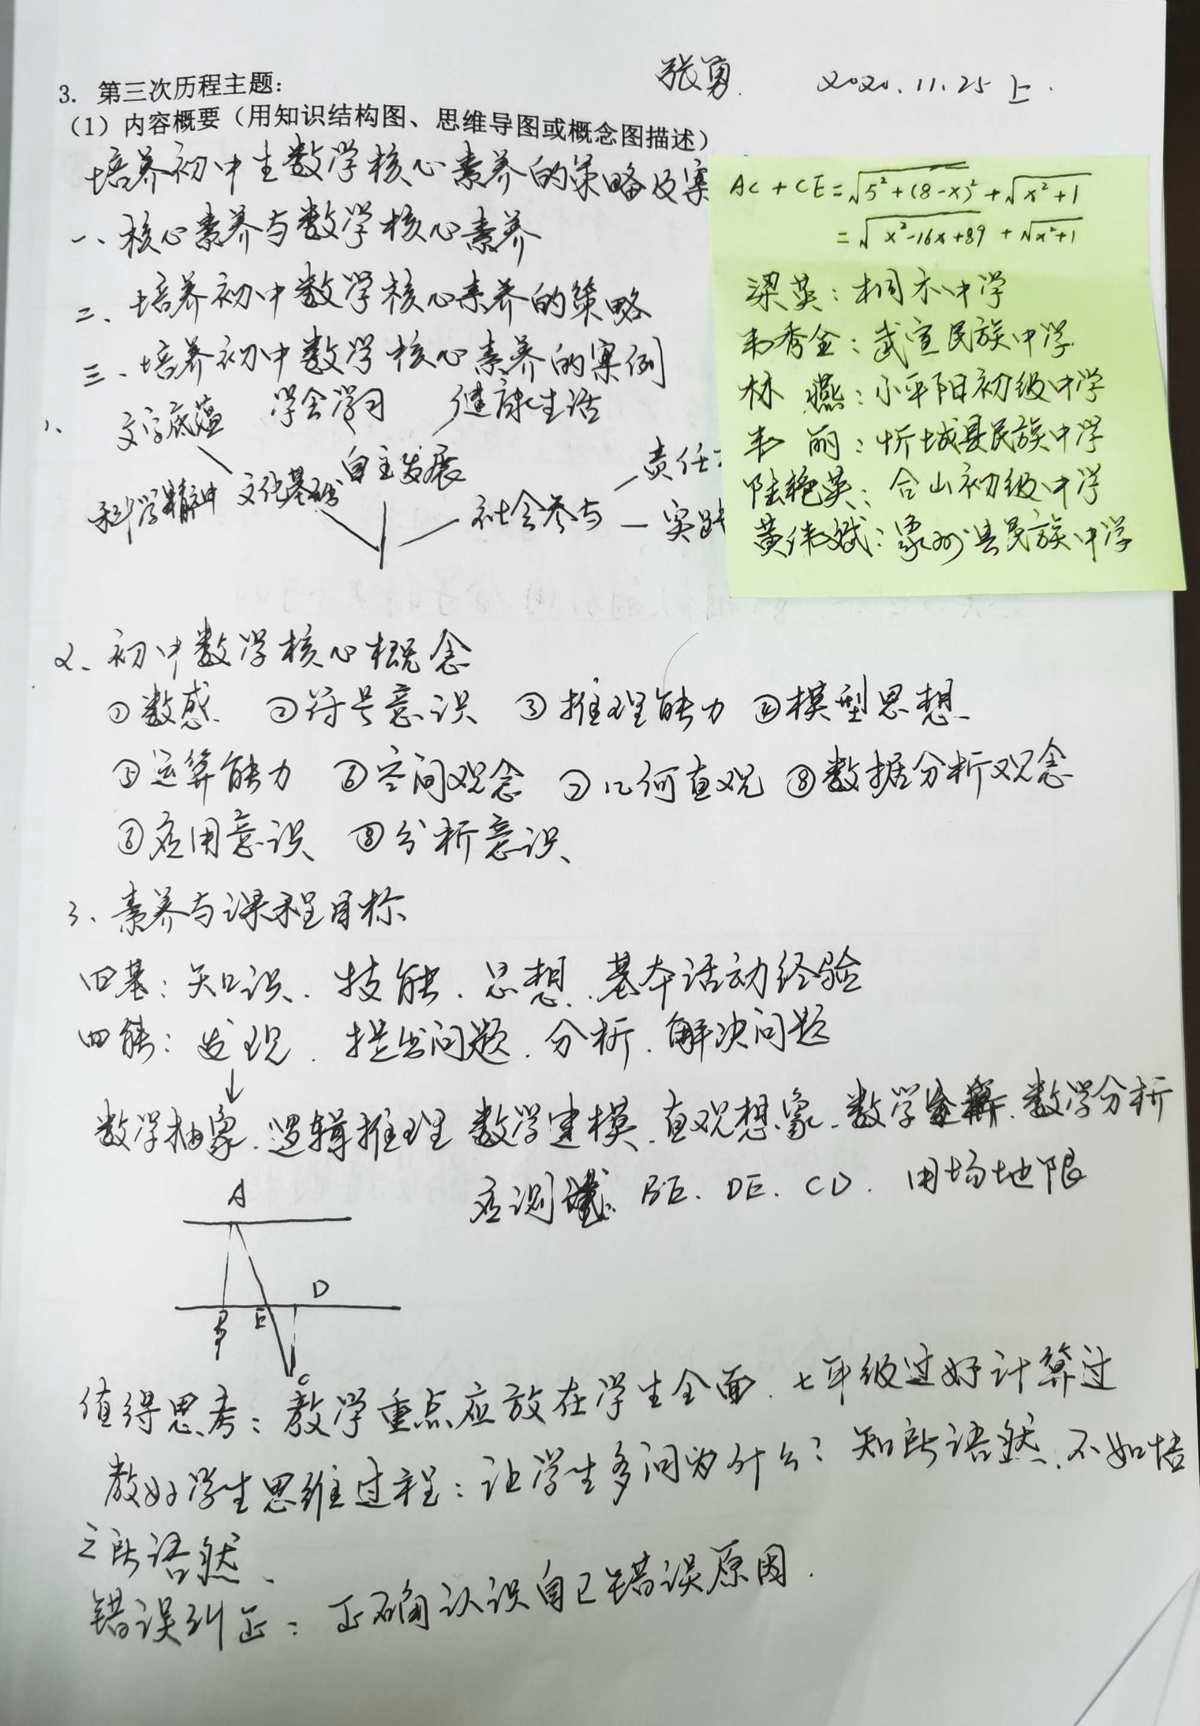 张勇. 2020.11.25 上.
3. 第三次历程主题:
(1) 内容概要（用知识结构图、思维导图或概念图描述）
培养初中生数学核心素养的策略及案
一、核心素养与数学核心素养
二、培养初中数学核心素养的策略
三、培养初中数学核心素养的案例
AC + CE = √5²+(8-x)² + √x²+1
= √x²-16x+89 + √x²+1
梁英：桐木中学
韦秀金：武宣民族中学
林 燕：小平阳初级中学
韦 丽：忻城县民族中学
陆艳英：合山初级中学
黄伟斌：象州县民族中学
1、
文字底蕴 学会学习 健康生活
科学精神 文化基础 自主发展 责任
社会参与 实践
2、初中数学核心概念
①数感 ②符号意识 ③推理能力 ④模型思想
⑤运算能力 ⑥空间观念 ⑦几何直观 ⑧数据分析观念
⑨应用意识 ⑩分析意识
3、素养与课程目标
四基：知识、技能、思想、基本活动经验
四能：发现、提出问题、分析、解决问题
↓
数学抽象、逻辑推理 数学建模、直观想象、数学 数学分析
应测 BE、DE、CD. 用场地限
A
B E D
C
值得思考：教学重点应放在学生全面、七年级过好计算过
教好学生思维过程：让学生多问为什么？知所语然、不如悟
之所语然、
错误纠正：正确认识自己错误原因.